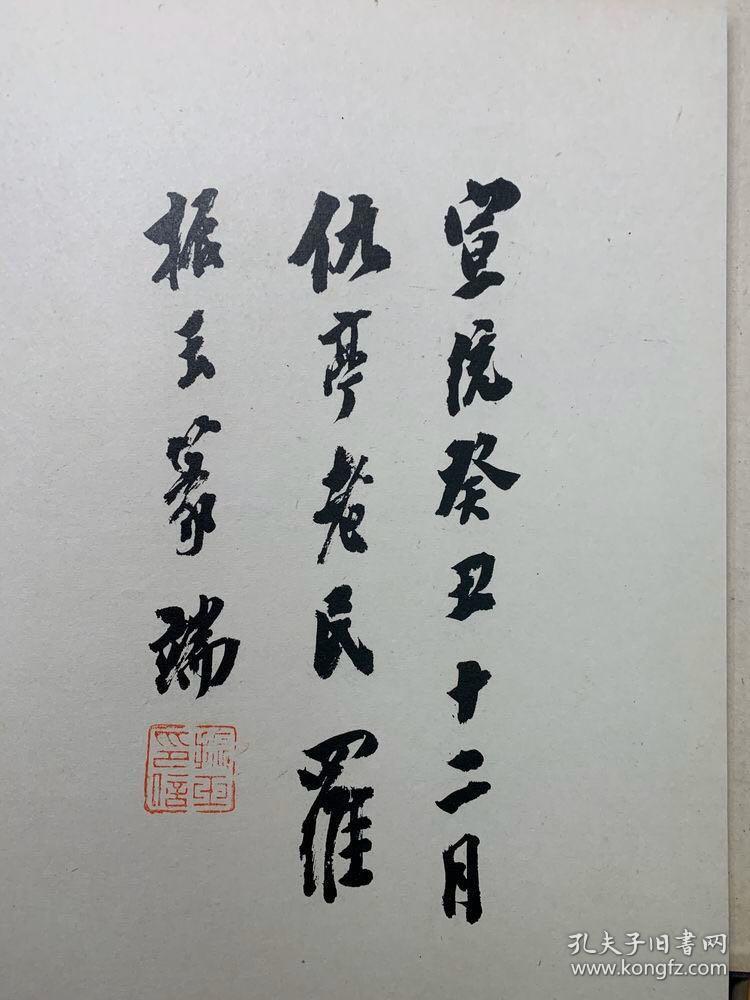 宣統癸丑十二月
仇亭老民羅
振玉篆端
振玉
印信
孔夫子旧書网
www.kongfz.com